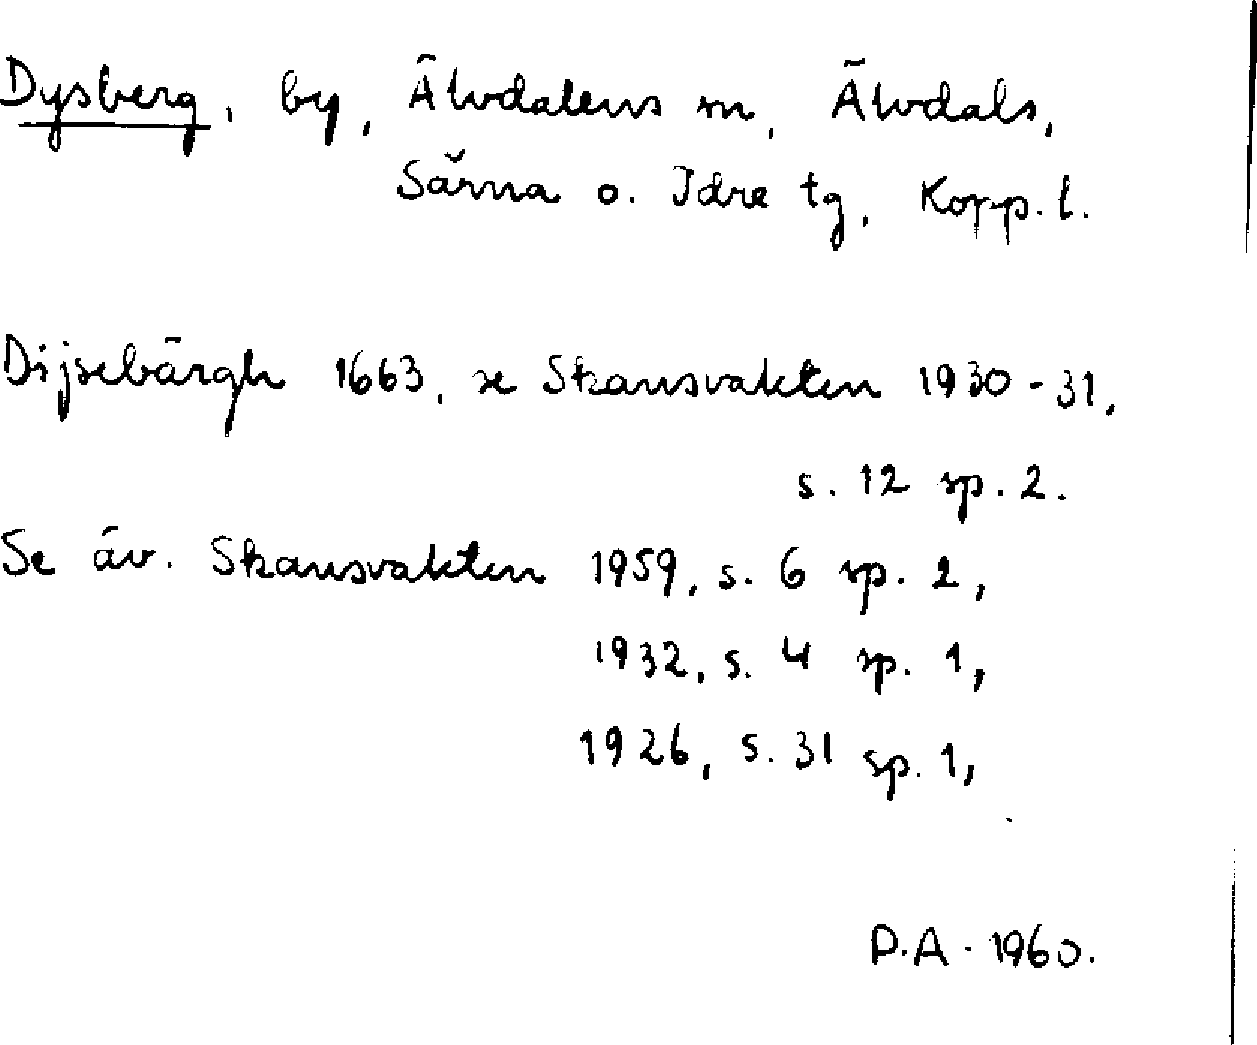 Dysberg, by, Älvdalens sn, Älvdals,
Särna o. Idre tg, Kopp. l.
Dijsebärgh 1663, se Skansvakten 1930-31,
s. 12 sp. 2.
Se äv. Skansvakten 1959, s. 6 sp. 2,
1932, s. 4 sp. 1,
1926, s. 31 sp. 1,
P.A. 1960.